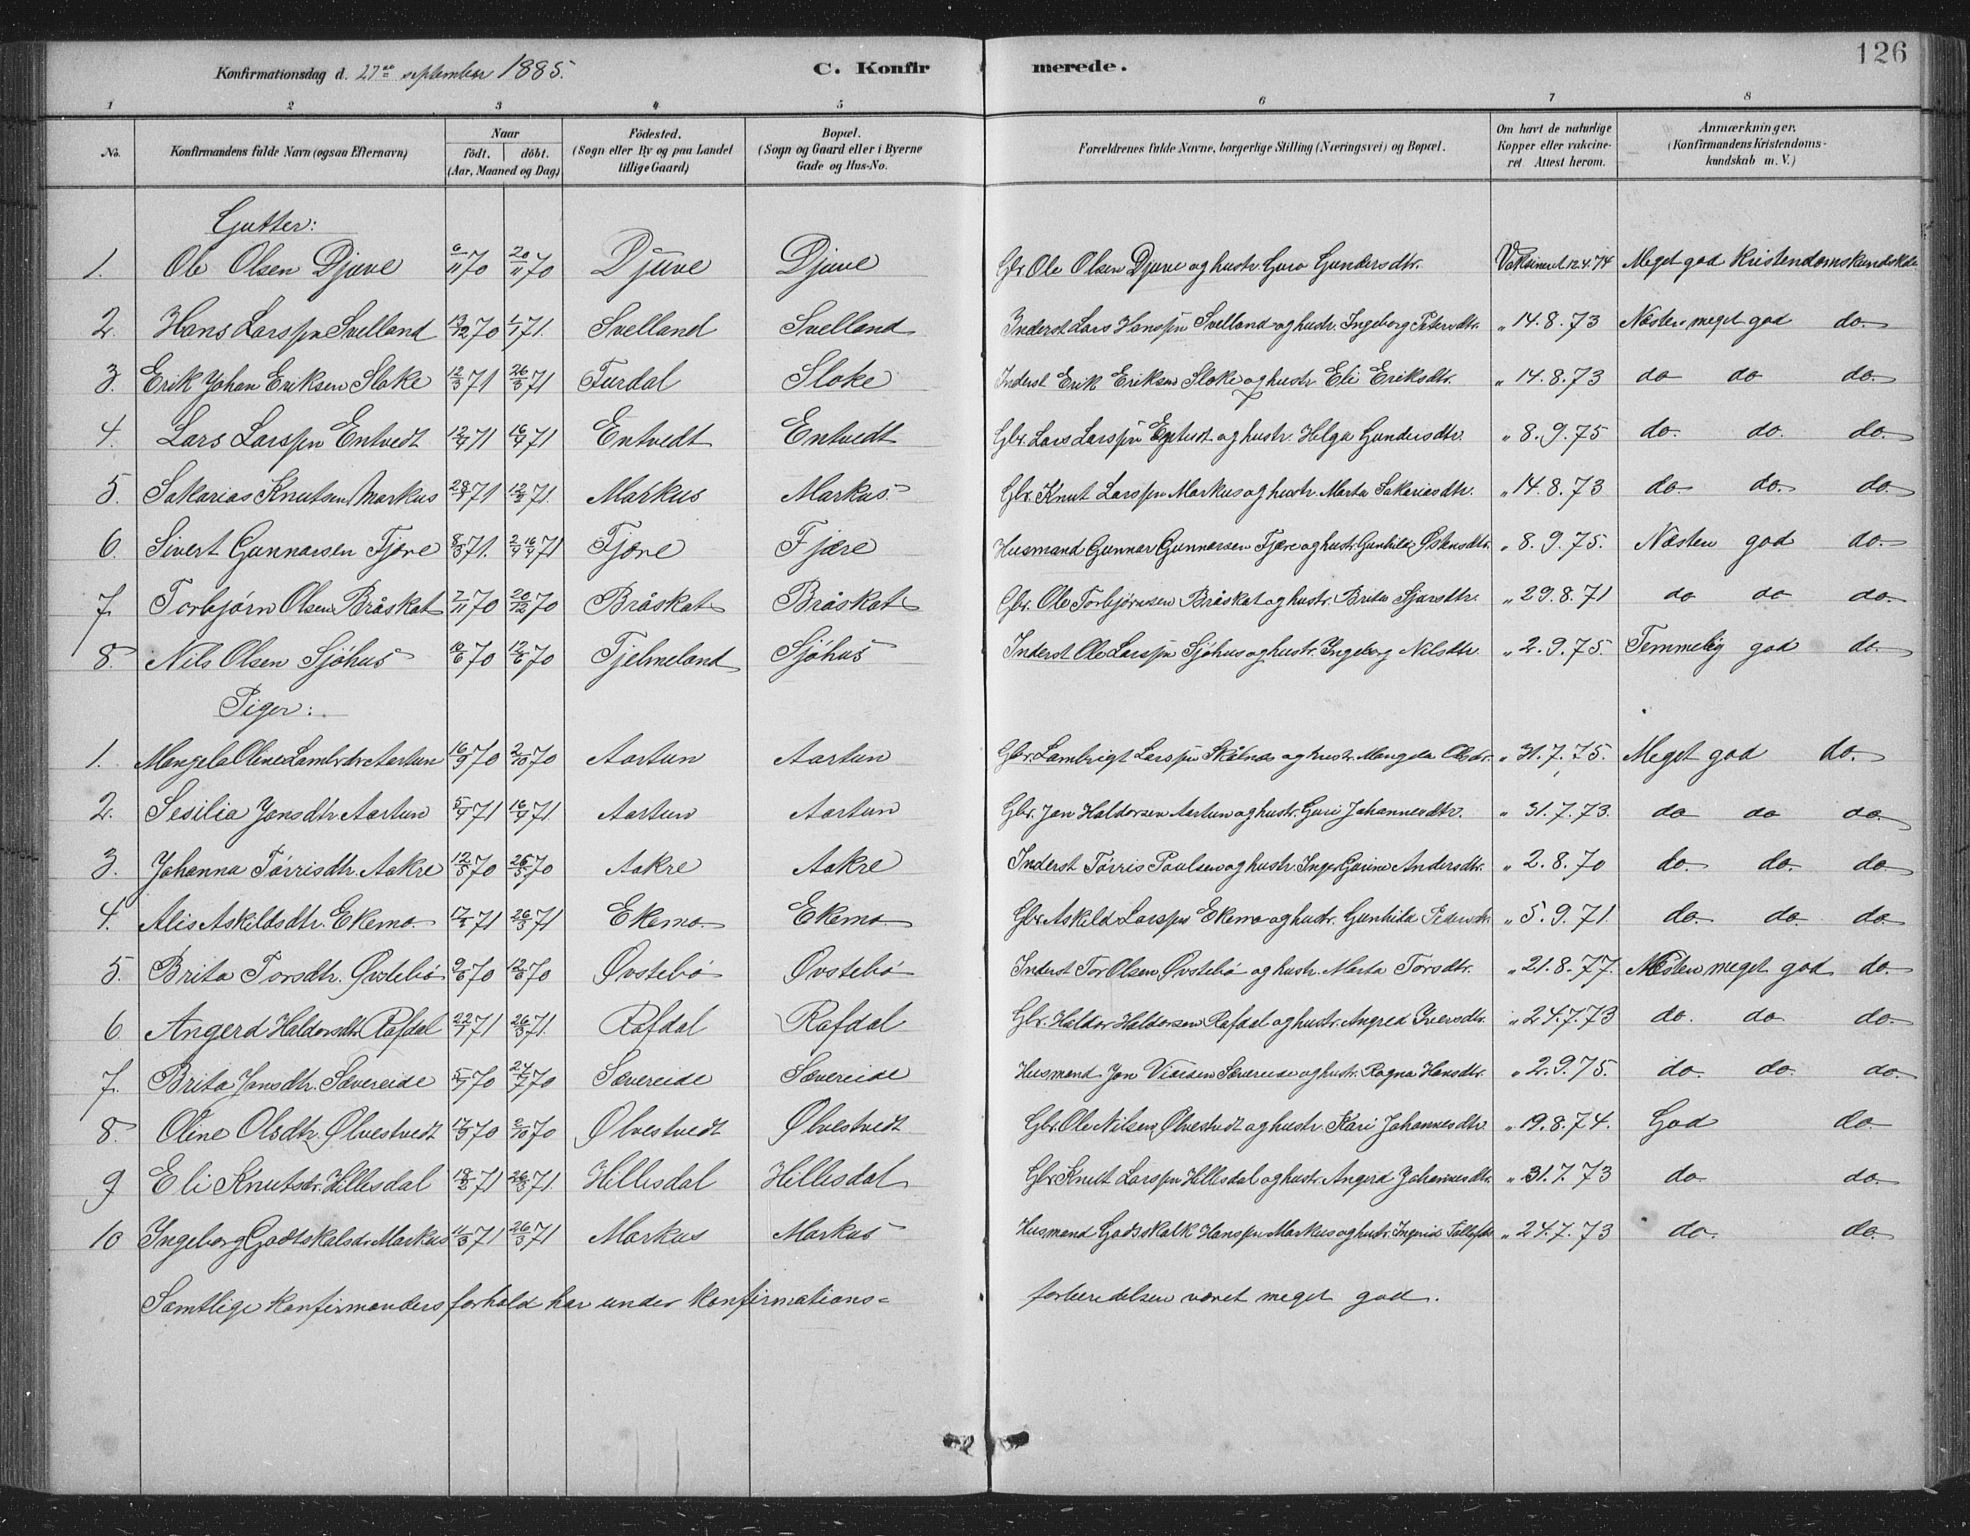 126
Konfirmationsdag d. 27de september 1885. C. Konfirmerede.
1 2 3 4 5 6 7 8
No. Konfirmandens fulde Navn (ogsaa Efternavn) Naar födt. döbt. (Aar, Maaned og Dag) Födested. (Sogn eller By og paa Landet tillige Gaard) Bopæl. (Sogn og Gaard eller i Byerne Gade og Hus-No. Forældrenes fulde Navne, borgerlige Stilling (Næringsvei) og Bopæl. Om havt de naturlige Kopper eller vakcineret. Attest herom. Anmærkninger, (Konfirmandens Kristendomskundskab m. V.)
Gutter:
1. Ole Olsen Djuve 6/11 70 20/11 70 Djuve Djuve Gbr. Ole Olsen Djuve og hustr. Guro Gundersdtr. Vaksineret 12.4.74 Meget god Kristendomskundskab
2. Hans Larssen Svelland 13/12 70 1/1 71. Svelland Svelland Inderst Lars Hanssen Svelland og hustr. Ingeborg Petersdtr. " 14.8.73 Næsten meget god do.
3. Erik Johan Eriksen Sloke 12/3 71 26/3 71 Furdal Sloke Inderst Erik Eriksen Sloke og hustr. Eli Eriksdtr. " 14.8.73 do do do.
4. Lars Larssen Entvedt 12/4 71 16/4 71 Entvedt Entvedt Gbr. Lars Larssen Entvedt og hustr. Helga Gundersdtr. " 8.9.75 do. do. do.
5. Sakarias Knutsen Markus 28/1 71 12/2 71. Markus Markus. Gbr. Knut Larssen Markus og hustr. Marta Sakariasdtr. " 14.8.73 do do. do.
6. Sivert Gunnarsen Fjære 8/3 71. 2/4 16/4 71 Fjære Fjære Husmand Gunnar Gunnarsen Fjære og hustr. Gunhild Østensdtr. " 8.9.75. Næsten god do.
7. Torbjørn Olsen Bråskat 2/11 70 20/12 70 Bråskat Bråskat Gbr. Ole Torbjørnsen Bråskat og hustr. Brita Sjursdtr. " 29.8.71 do do do.
8. Nils Olsen Sjöhus 10/6 70 12/6 70 Fjelmeland Sjöhus Inderst Ole Larssen Sjöhus og hustr. Ingeborg Nilsdtr. " 2.9.75. Temmelig god do.
Piger:
1. Mangela Oline Lambr.dtr. Aartun 16/9 70 2/10 70 Aartun Aartun Gbr. Lambrigt Larssen Skålnes og hustr. Mangela Olsdtr. " 31.7.75. Meget god do.
2. Sesilia Jonsdtr. Aartun 5/4 71 16/4 71. Aartun Aartun Gbr. Jon Haldorsen Aartun og hustr. Guri Johannesdtr. " 31.7.73. do do do.
3. Johanna Törrisdtr. Aakre 12/5 70 26/5 70 Aakre Aakre Inderst Törris Paulsen og hustr. Inger Gurine Andersdtr. " 2.8.70 do. do. do.
4. Alis Askildsdtr. Ekemo. 26/3 71 Ekemo. Ekemo. Gbr. Askild Larssen Ekemo og hustr. Gunhild Pedersdtr. " 5.9.71. do. do. do
5. Brita Torsdtr. Øvstebö 9/6 70 12/6 70 Øvstebö Øvstebö Inderst Tor Olsen Øvstebö og hustr. Marta Torsdtr. " 21.8.77. Næsten meget god do.
6. Angerd Haldorsdtr. Rafdal 22/1 71 26/3 71. Rafdal Rafdal Gbr. Haldor Haldorsen Rafdal og hustr. Angrid Iversdtr. " 24.7.73 do. do do.
7. Brita Jonsdtr. Sævereide 70 24/7 70 Sævereide Sævereide Husmand Jon Sævereide og hustr. Ragna Hansdtr. " 2.9.75. do. do. do.
8. Oline Olsdtr. Ølvestvedt 17/9 70 2/10 70 Ølvestvedt Ølvestvedt Gbr. Ole Nilsen Ølvestvedt og hustr. Kari Johannesdtr. " 19.8.74. God do.
9 Eli Knutsdtr. Hillesdal 18/3 71 26/3 71. Hillesdal Hillesdal Gbr. Knut Larssen Hillesdal og hustr. Angerd Johannesdtr. " 31.7.73 do do.
10 Ingeborg Godtskalsdtr. Markus 11/3 71 26/3 71 Markus Markus Husmand Godtskalk Hanssen Markus og hustr. Ingrid Tollefsdtr. " 24.7.73 do. do.
Samtlige konfirmanders forhold har under konfirmations= forberedelsen været meget god.